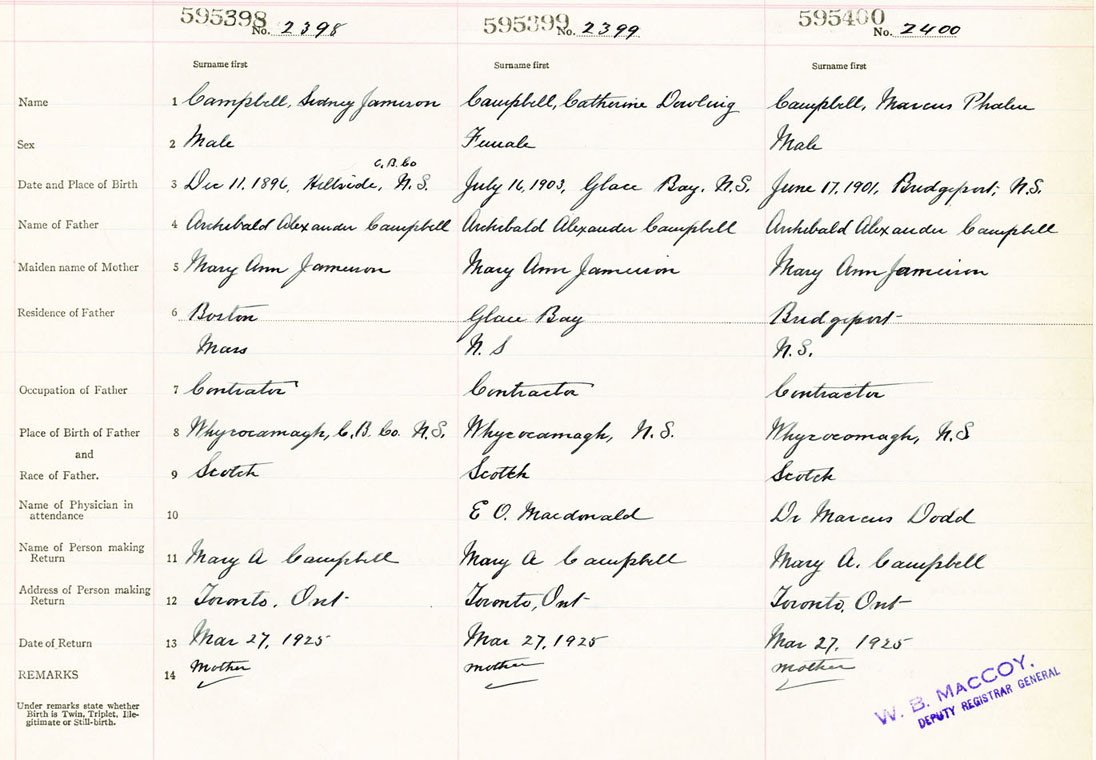 595398 595399 595400
No. 2398 No. 2399 No. 2400
Surname first Surname first Surname first
Name 1 Campbell, Sidney Jamieson Campbell, Catherine Dowling Campbell, Marcus Phalen
Sex 2 Male Female Male
C.B.Co
Date and Place of Birth 3 Dec 11. 1896, Hillside, N.S. July 16, 1903, Glace Bay, N.S. June 17, 1901, Bridgeport, N.S.
Name of Father 4 Archibald Alexander Campbell Archibald Alexander Campbell Archibald Alexander Campbell
Maiden name of Mother 5 Mary Ann Jamieson Mary Ann Jamieson Mary Ann Jamieson
Residence of Father 6 Boston Glace Bay Bridgeport
Mass N.S N.S.
Occupation of Father 7 Contrator Contractor Contractor
Place of Birth of Father 8 Whycocamagh, C.B. Co. N.S. Whycocamagh, N.S. Whycocomagh, N.S
and
Race of Father. 9 Scotch Scotch Scotch
Name of Physician in
attendance 10 E O. Macdonald Dr Marcus Dodd
Name of Person making
Return 11 Mary A Campbell Mary A Campbell Mary A. Campbell
Address of Person making
Return 12 Toronto, Ont Toronto, Ont Toronto, Ont
Date of Return 13 Mar 27, 1925 Mar 27, 1925 Mar 27, 1925
REMARKS 14 Mother mother mother
Under remarks state whether
Birth is Twin, Triplet, Ille-
gitimate or Still-birth.
W. B. MacCOY,
DEPUTY REGISTRAR GENERAL